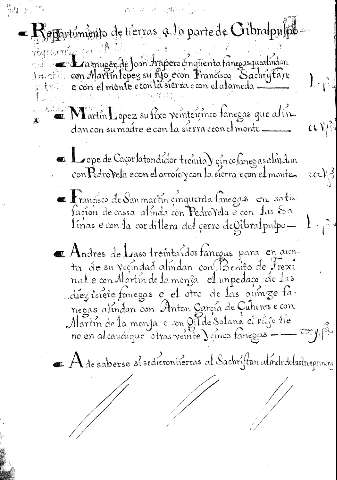 Repartimiento de tierras a la parte de Gibralpulpo
La muger de Joan Arapero çinquenta fanegas qe alindan
con Martin Lopez su fijo e con Francisco Sachristan
e con el monte e con la sierra e con el alameda
l. fas
Martin Lopez su fixo veinteicinco fanegas que alin
dan con su madre e con la sierra e con el monte
Lope de Caçorla tondidor treinta y cinco fanegas alindan
con Pedro Vela e con el arroio y con la sierra e con el monte
Francisco de San martin cinquenta fanegas en satis
facion de cassa alinda con Pedro Vela e con las Sa
linas e con la cordillera del çerro de Gibralpulpo
l. fas
Andres de Laso treintaidos fanegas para en cuen
ta de su vezindad alindan con Benito de
e con Martin de la monja el un pedaco de las
diez isiete fanegas e el otro de las quinze fa
negas alindan con Anton Garcia de Cuberos e con
Martin de la monja e con Gil de Solana el viejo tie
ne en alcaudique otras veinte y cinco fanegas
A de saberse si se dieron tierras al Sachristan